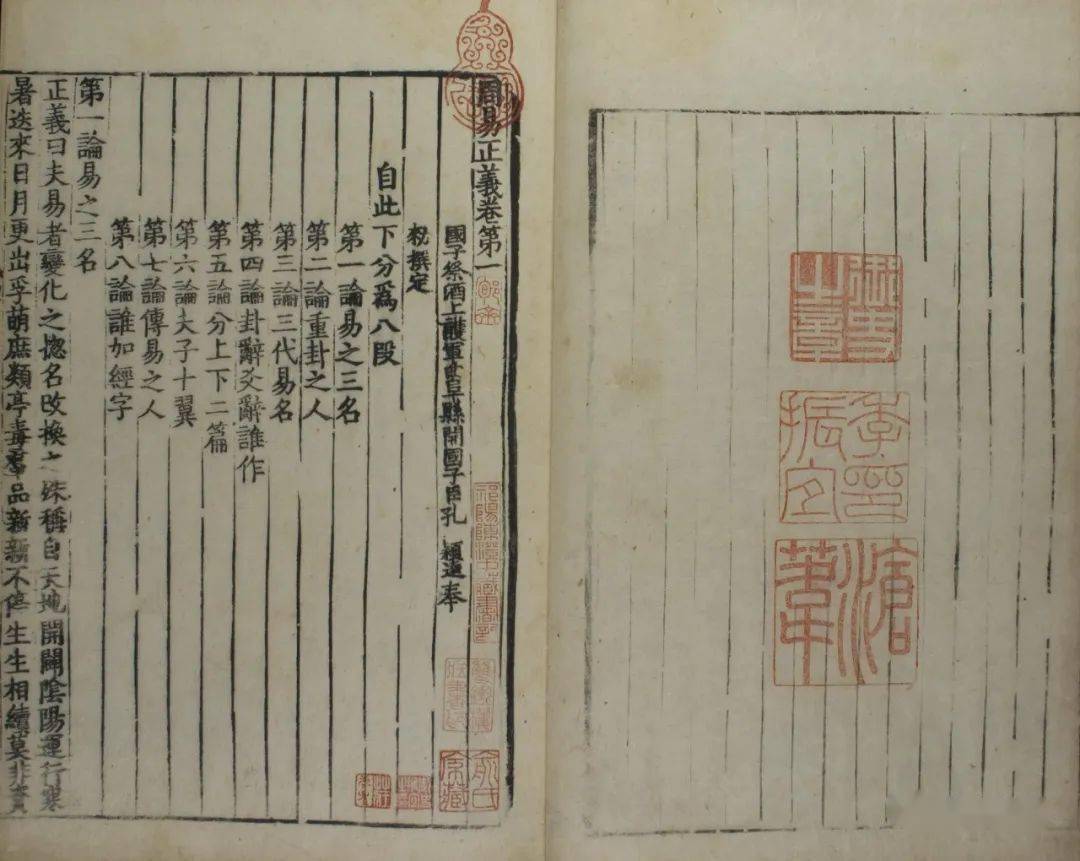 周易正義卷第一
國子祭酒上護軍曲阜縣開國子臣孔 穎達奉
敕撰定
自此下分爲八段
第一論易之三名
第二論重卦之人
第三論三代易名
第四論卦辭爻辭誰作
第五論分上下二篇
第六論夫子十翼
第七論傳易之人
第八論誰加經字
第一論易之三名
正義曰夫易者變化之揔名改換之殊稱自天地開闢陰陽運行寒
暑迭來日月更出孚萌庶類亭毒羣品新新不停生生相續莫非資
俞氏家藏
祁陽陳澄中藏書記
御史之章
季振宜印
滄葦